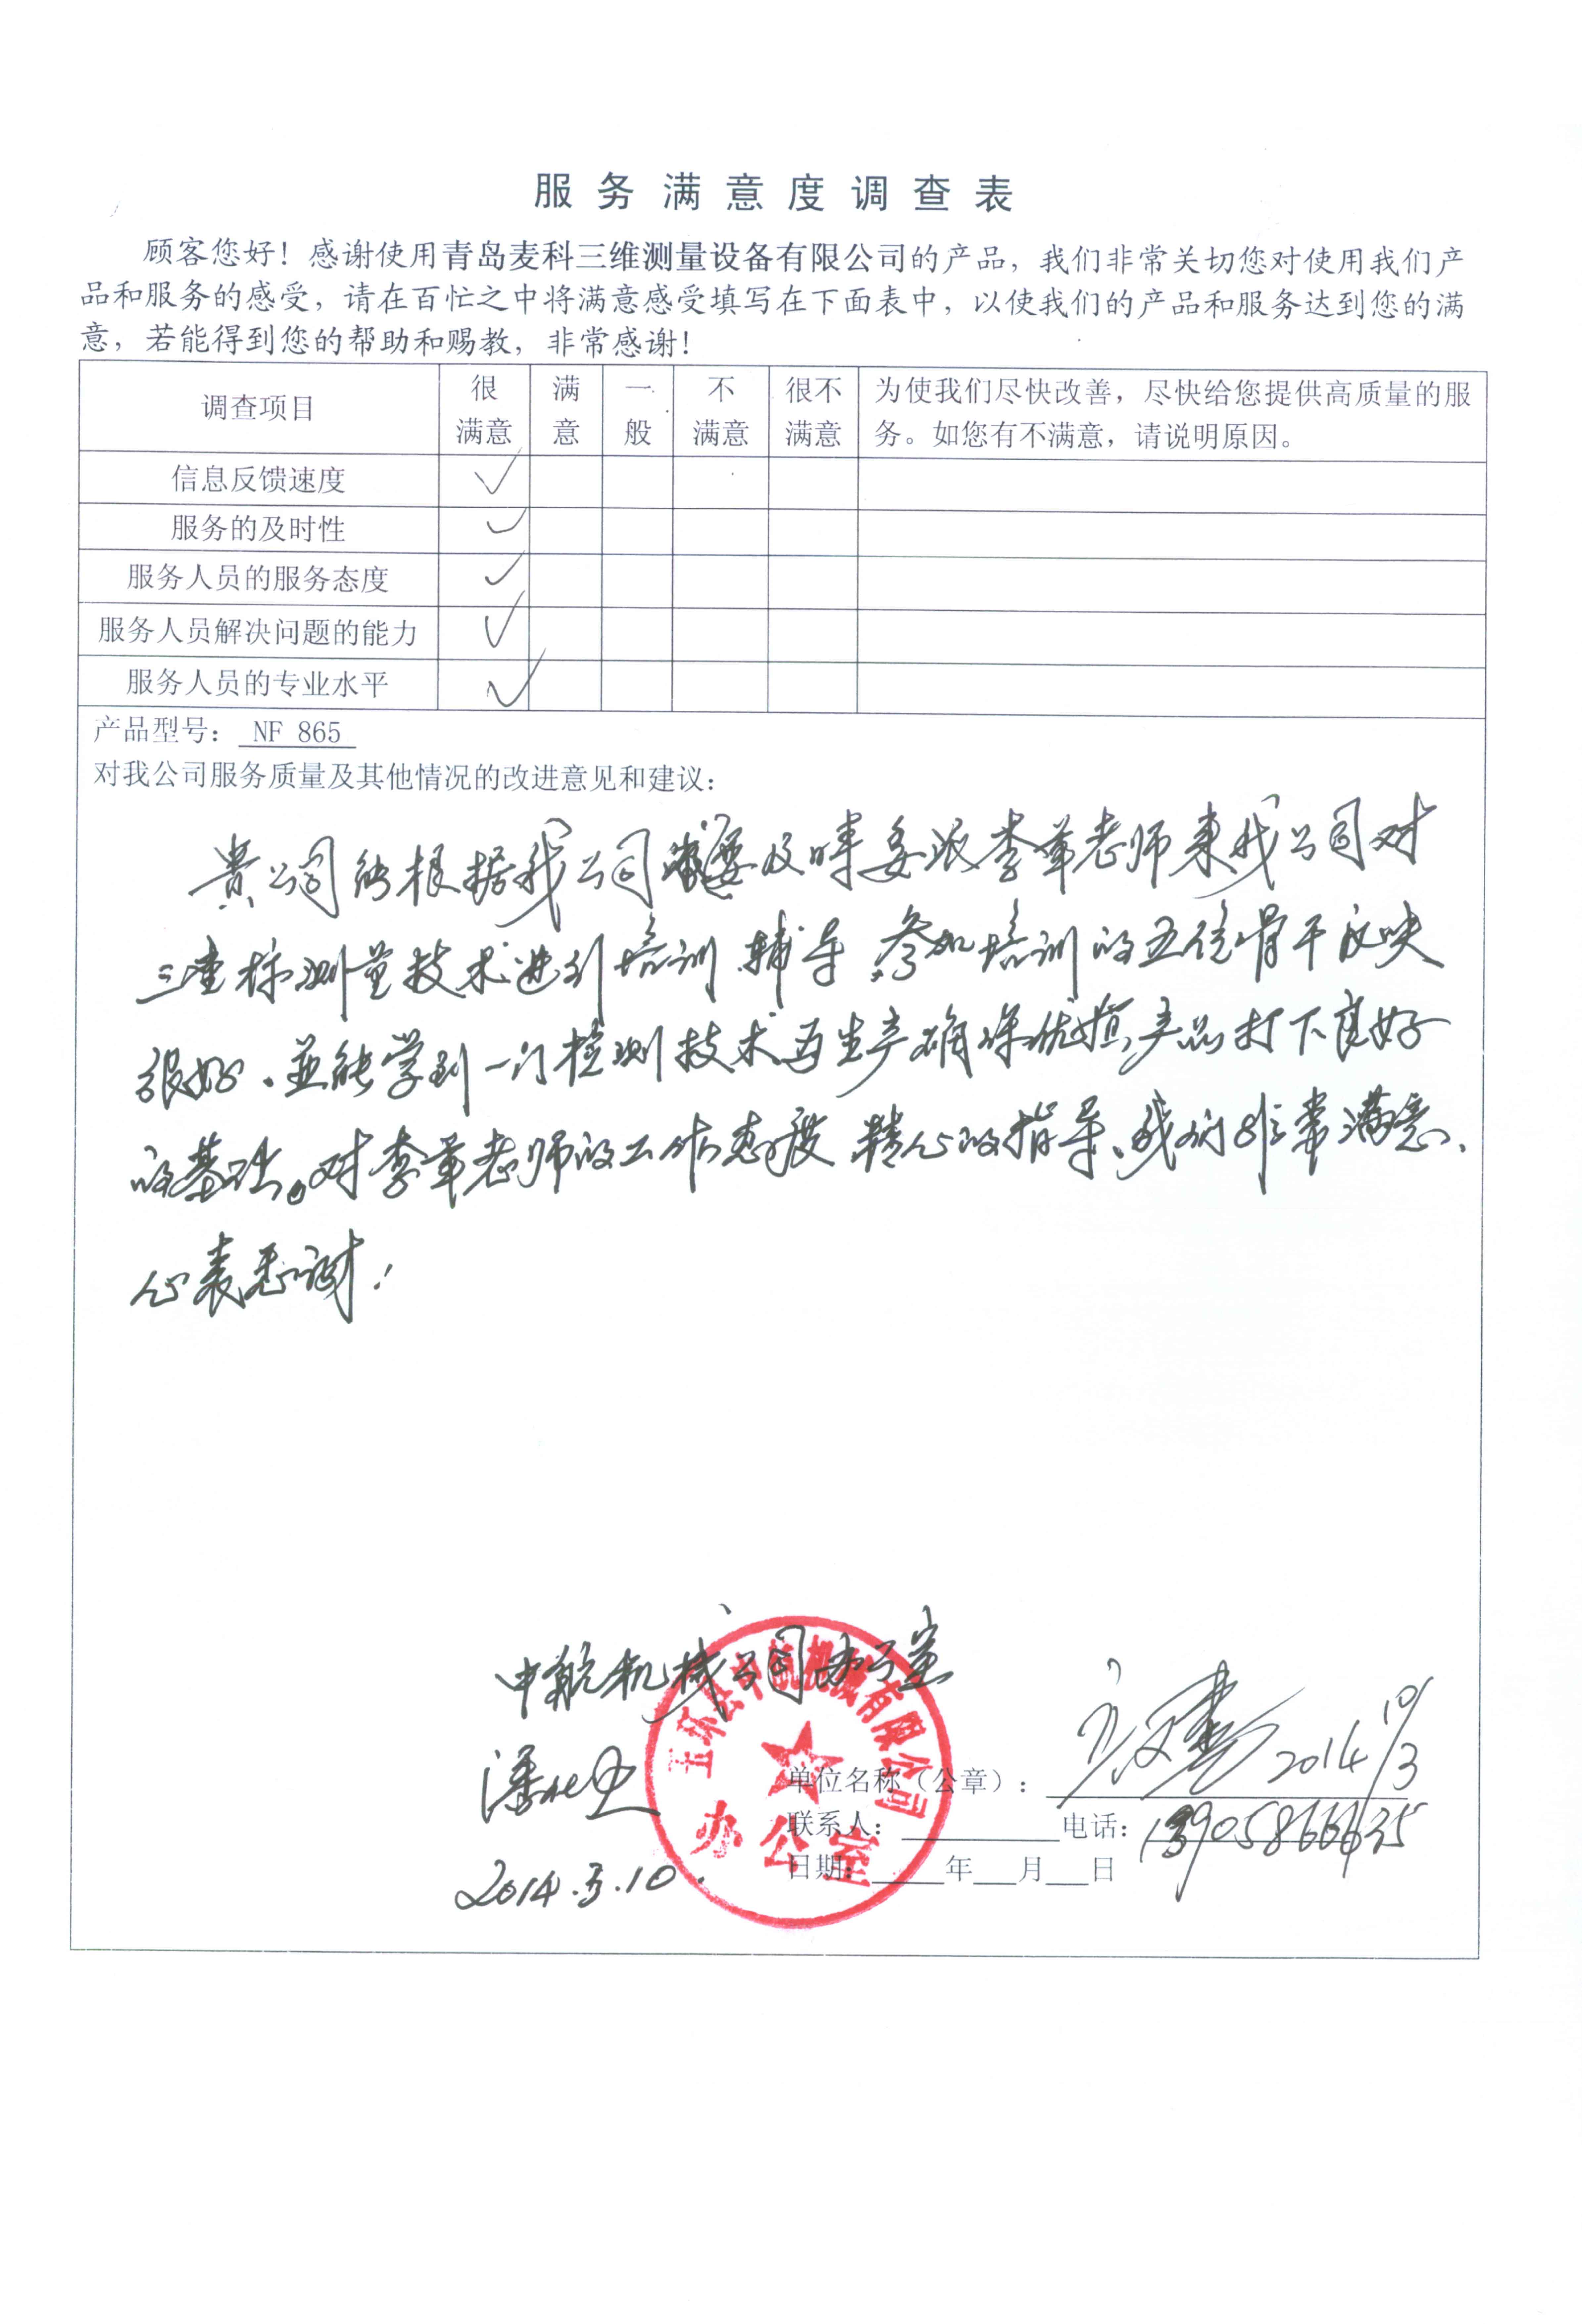 服务满意度调查表
顾客您好！感谢使用青岛麦科三维测量设备有限公司的产品，我们非常关切您对使用我们产
品和服务的感受，请在百忙之中将满意感受填写在下面表中，以使我们的产品和服务达到您的满
意，若能得到您的帮助和赐教，非常感谢！
调查项目 很满意 满意 一般 不满意 很不满意 为使我们尽快改善，尽快给您提供高质量的服务。如您有不满意，请说明原因。
信息反馈速度 ✓
服务的及时性 ✓
服务人员的服务态度 ✓
服务人员解决问题的能力 ✓
服务人员的专业水平 ✓
产品型号： NF 865
对我公司服务质量及其他情况的改进意见和建议：
贵公司能根据我公司需要及时委派李军老师来我公司对
三坐标测量技术进行培训辅导.参加培训的五位骨干反映
很好.並能学到一门检测技术.为生产确保优质产品打下良好
的基础。对李军老师的工作态度 精心的指导、我们非常满意.
心表忠谢！
中航机械公司办公室
玉环县中航机械有限公司
办公室
2014.3.10.
2014 10/3
单位名称（公章）：
联系人： 电话：
日期： 年 月 日